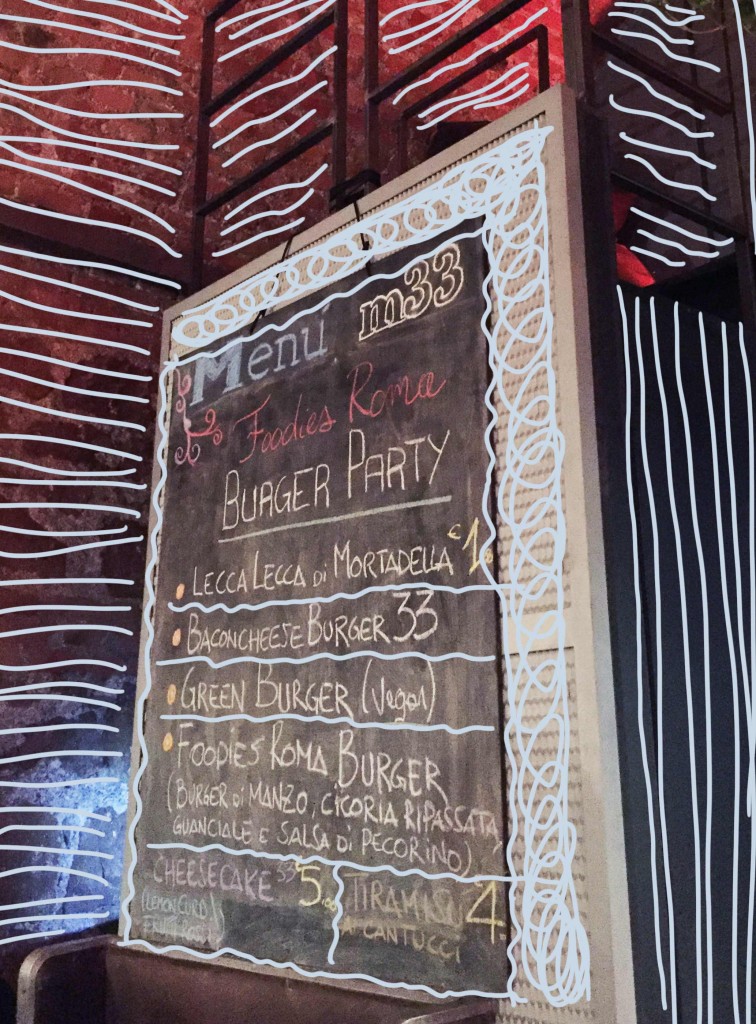 Menu m33
Foodies Roma
BURGER PARTY
LECCA LECCA Di MORTADELLA €1.
BACONCHEESE BURGER 33
GREEN BURGER (Vegan)
FOODIES ROMA BURGER
(BURGER Di MANZO, CICORIA RIPASSATA,
GUANCIALE E SALSA Di PECORINO)
CHEESECAKE 33 €5.00 TIRAMISU 4.
(LEMON CURD / AI CANTUCCI